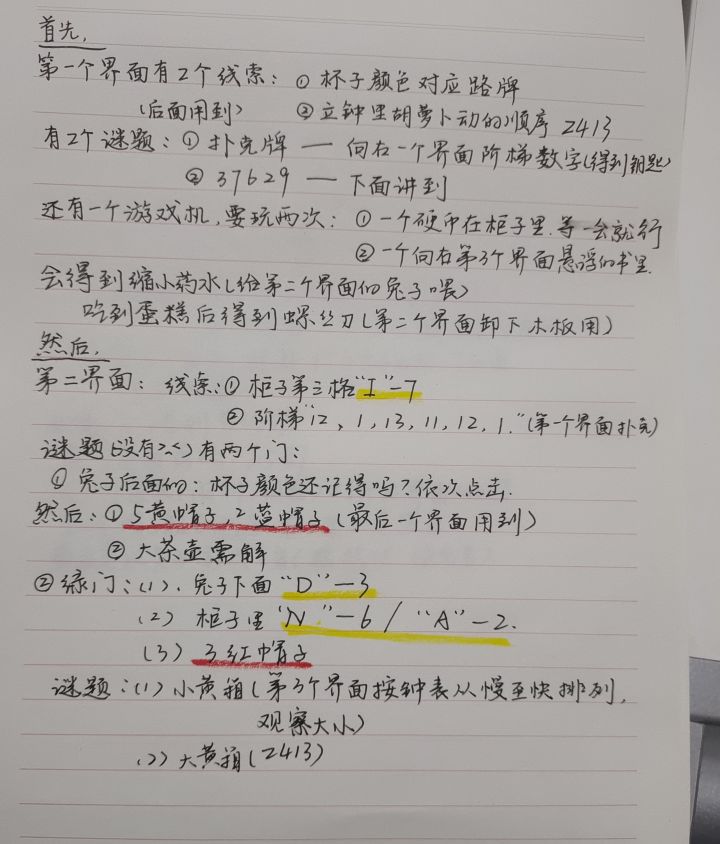 首先,
第一个界面有2个线索: ① 杯子颜色对应路牌
(后面用到) ② 立钟里胡萝卜动的顺序 2413
有2个谜题: ① 扑克牌 — 向右一个界面阶梯数字(得到钥匙)
② 37629 — 下面讲到
还有一个游戏机,要玩两次: ① 一个硬币在柜子里.等一会就行
② 一个向右第3个界面悬浮的书里.
会得到缩小药水(给第二个界面的兔子喂)
吃到蛋糕后得到螺丝刀(第二个界面卸下木板用)
然后,
第二界面: 线索:① 柜子第三格"I"-7
② 阶梯"12, 1, 13, 11, 12, 1."(第一个界面扑克)
谜题(没有>.<)有两个门:
① 兔子后面的: 杯子颜色还记得吗?依次点击.
然后: ① 5黄帽子,2蓝帽子(最后一个界面用到)
② 大茶壶需解
② 绿门:(1). 兔子下面"D"-3
(2) 柜子里"N"-6 / "A"-2.
(3) 3红帽子
谜题:(1) 小黄箱(第3个界面按钟表从慢至快排列,
观察大小)
(2) 大黄箱(2413)